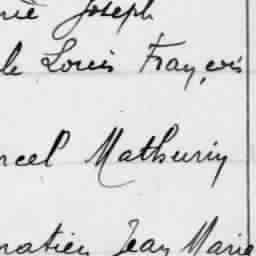 Joseph
Louis François
rcel Mathurin
Jean Marie